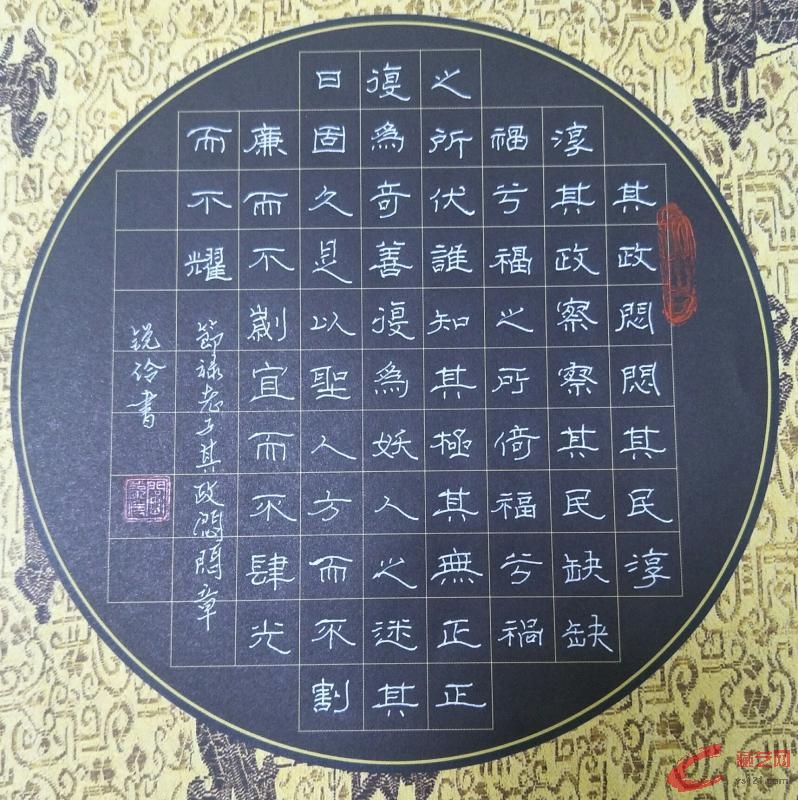 其政悶悶其民淳
淳其政察察其民缺缺
禍兮福之所倚福兮禍
之所伏誰知其極其無正正
復為奇善復為妖人之迷其
日固久是以聖人方而不割
廉而不劌宜而不肆光
而不耀
節禄老子其政悶悶章
銳伶書